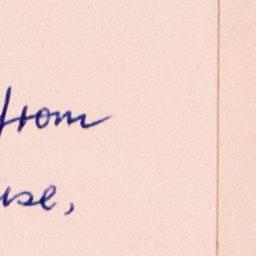 from
use,